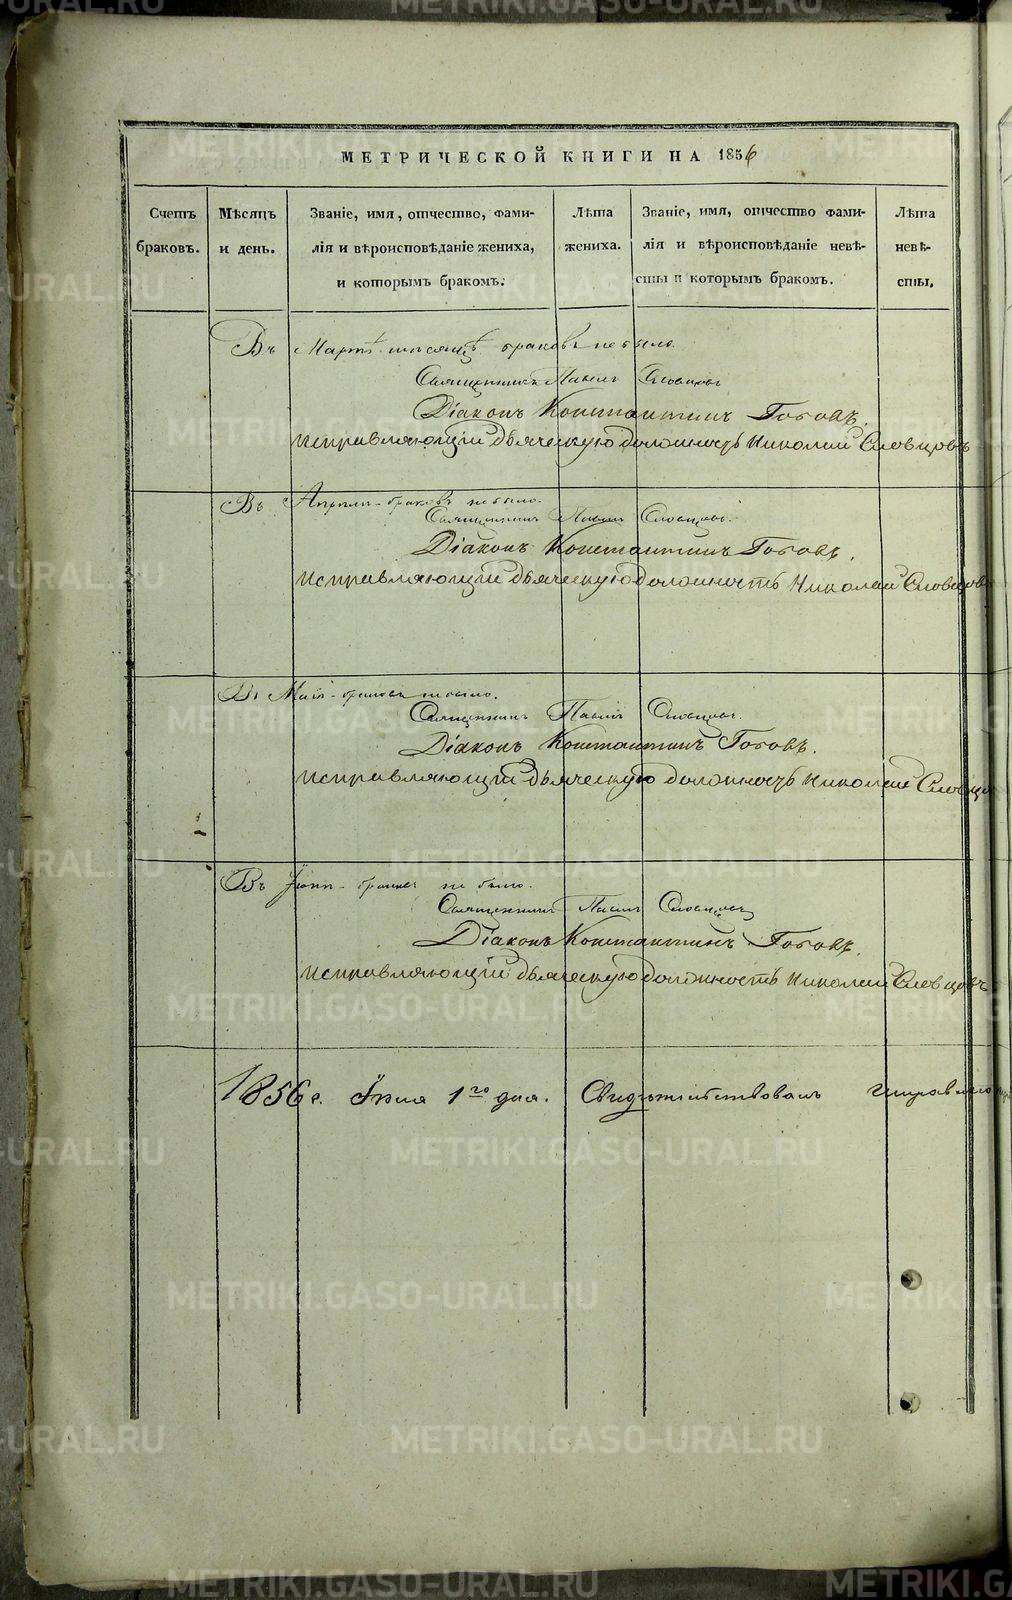 МЕТРИЧЕСКОЙ КНИГИ НА 1856
Счетъ браковъ.
Мѣсяцъ и день.
Званіе, имя, отчество, фами-
лія и вѣроисповѣданіе жениха,
и которымъ бракомъ.
Лѣта жениха.
Званіе, имя, отчество фами-
лія и вѣроисповѣданіе невѣ-
сты и которымъ бракомъ.
Лѣта невѣ-
сты.
Въ Мартѣ мѣсяцѣ браковъ не было.
Священникъ Павелъ Словцовъ
Діаконъ Константинъ Боговъ.
Исправляющій дьяческую должность Николай Словцовъ
Въ Апрѣлѣ браковъ не было.
Священникъ Павелъ Словцовъ.
Діаконъ Константинъ Боговъ.
Исправляющій дьяческую должность Николай Словцовъ
Въ Маѣ браковъ не было.
Священникъ Павелъ Словцовъ.
Діаконъ Константинъ Боговъ.
Исправляющій дьяческую должность Николай Словцо
Въ Іюнѣ браковъ не было.
Священникъ Павелъ Словцовъ
Діаконъ Константинъ Боговъ.
Исправляющій дьяческую должность Николай Словцовъ
1856 г. Іюля 1го дня. Свидѣтельствовалъ
METRIKI.GASO-URAL.RU